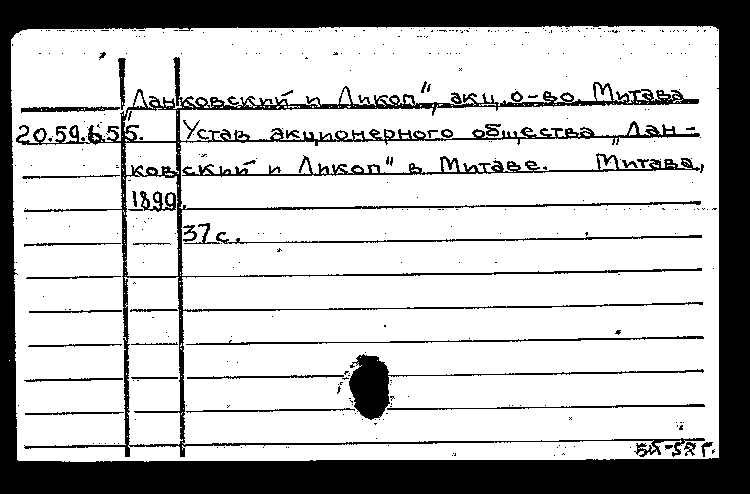 „Ланковский и Ликоп", акц. о-во. Митава
20.59.6.55. Устав акционерного общества „Лан-
ковский и Ликоп" в Митаве. Митава,
1899.
37 с.